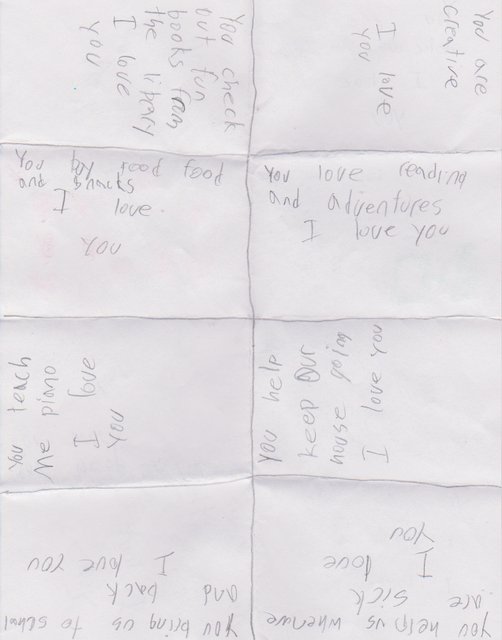 You check
out fun
books from
the library
I love
you
You are
creative
I love
you
You buy good food
and snacks
I love
you
You love reading
and adventures
I love you
You teach
me piano
I love
you
You help
keep our
house going
I love you
You bring us to school
and back
I love you
you help us whenwe
are sick
I love
you